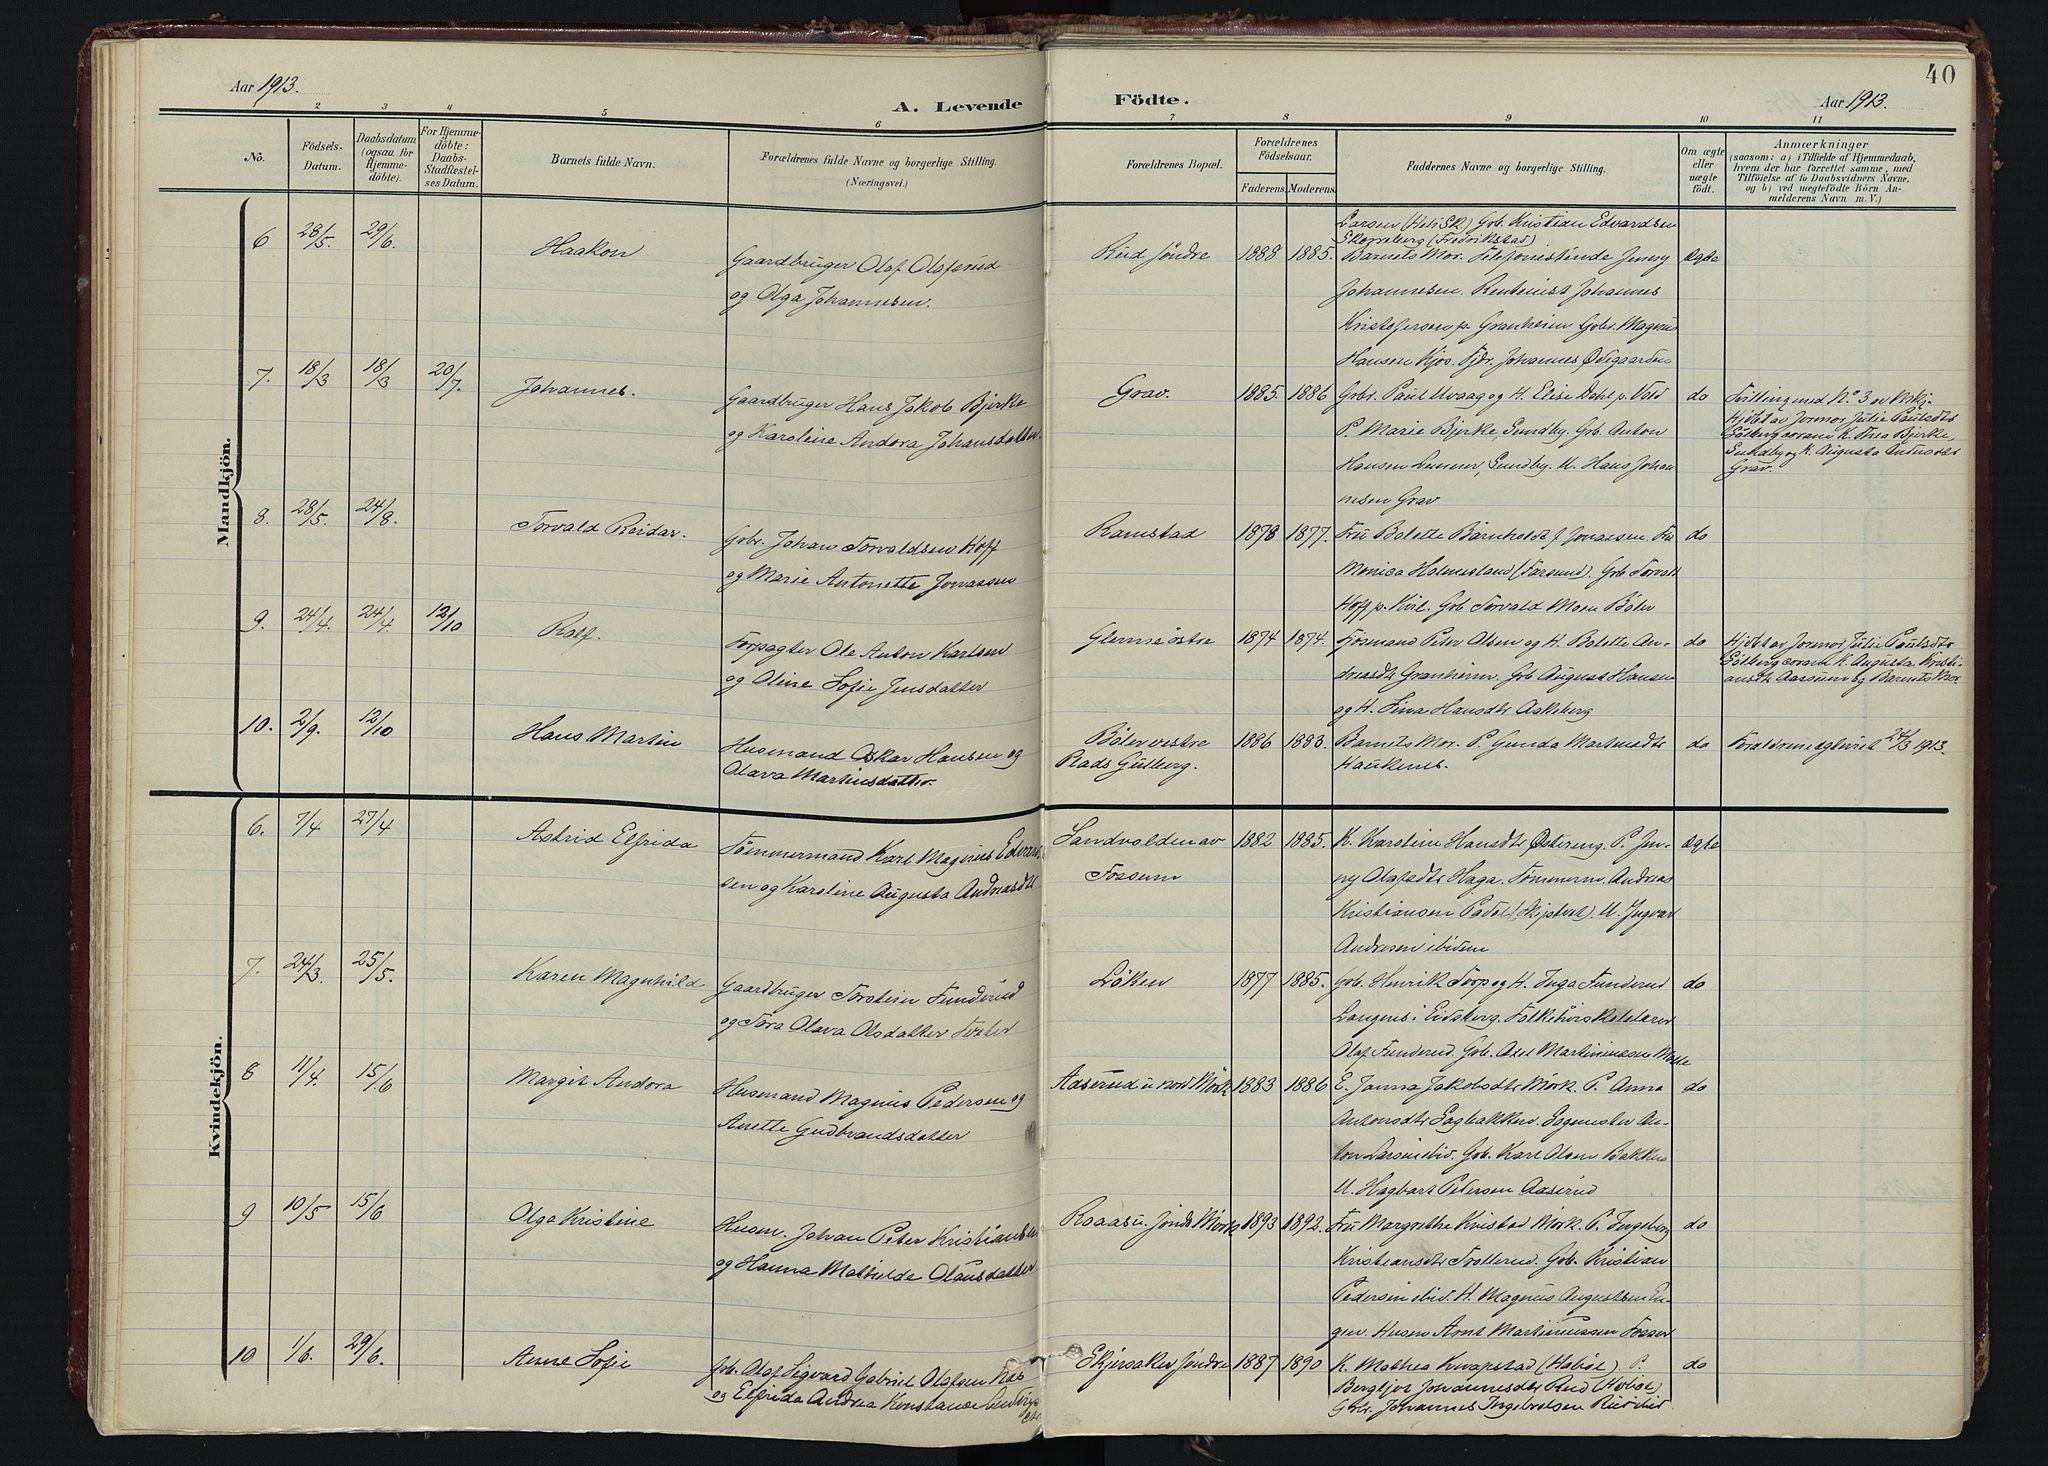 40
Aar 1913.
A. Levende Födte.
Aar 1913.
2 3 4 5 6 7 8 9 10 11
No.
Födsels-Datum.
Daabsdatum (ogsaa for Hjemmedöbte).
For Hjemmedöbte: Daabs-Stadfæstelses Datum.
Barnets fulde Navn.
Forældrenes fulde Navne og borgerlige Stilling.
(Næringsvei.)
Forældrenes Bopæl.
Forældrenes Födselsaar.
Faderens. Moderens.
Faddernes Navne og borgerlige Stilling.
Om ægte eller uægte födt.
Anmærkninger
(saasom: a) i Tilfælde af Hjemmedaab,
hvem der har forrettet samme, med
Tilföielse af to Daabsvidners Navne,
og b) ved uægtefödte Börn An-
melderens Navn m. V.)
Mandkjön.
6 28/5. 29/6. Haakon Gaardbruger Olaf Olafsrud
og Olga Johannesen.
Rud söndre 1888 1885.
Larsen (Heli Sk.) Gbr. Kristian Edvardsen
(Fredrikstad)
Barnets Mor. Telefonistinde Jenny
Johannesen. Rentenist Johannes
Kristofersen p. Granheim Gbr. Magnus
Hansen Kjos. Fhv. Johannes Ødegaarden
ægte
7. 18/3 18/3 20/7. Johannes. Gaardbruger Hans Jakob Bjerke
og Karoline Andora Johansdatter
Grav. 1885. 1886
Gbr. Paul Uvaag og H. Elise Dahl p. Vold
P. Marie Bjerke, Sundby. Gbr. Anton
Hansen Lunner, Sundby. U. Hans Johan
nesen Grav
do
Tvilling med No 3 av
Hjdbt av Jormor Julie Paulsdtr
Gulberg coram K. Thea Bjerke,
Sundby og K. Augusta
Grav.
8. 28/5. 24/8. Torvald Reidar. Gbr. Johan Torvaldsen Hoff
og Marie Antonette Jonassen
Ramstad 1878 1877.
Fru Bolette Barnholdt f. Jonassen. Fru
Monica Holmesland (Farsund). Gbr Torvald
Hoff p. Kirl. Gbr Torvald Moen Böler
do
9. 24/4. 24/4. 12/10 Rolf. Forpagter Ole Anton Karlsen
og Oline Sofie Jensdatter
Glenne östre 1874 1874.
Fjösmand Peter Olsen og H. Bolette An-
dreasdtr Granheim. Gbr August Hansen
og H. Lina Hansdtr Askeberg
do
Hjdbt av Jormor Julie Paulsdtr
Gulberg coram K. Augusta Kristi-
ansdtr Aasruum og Barnets Mor
10. 2/9. 12/10 Hans Martin Husmand Oskar Hansen og
Olava Martinsdatter.
Böler vestre
Plads Gulberg. 1886 1883.
Barnets Mor. P. Gunda Martinsdtr
Haukenes.
do
Forældrene ægteviet 24/3 1913.
Kvindekjön.
6. 7/4 27/4 Astrid Elfrida Tömmermand Karl Magnus Edvard
sen og Karoline Augusta Andreasdtr
Sandvolden av
Fossum 1882 1885.
K. Karoline Hansdtr Østereng. P. Jen-
ny Olafsdtr Haga. Tömmerm. Andreas
Kristiansen (Skiptvet). U. Ingvar
Andresen ibidem
ægte
7. 24/3. 25/5. Karen Magnhild Gaardbruger Torstein Funderud
og Tora Olava Olsdatter
Löken 1877 1885.
Gbr. Henrik Torp og H. Inga Funderud
Langnes i Eidsberg. Folkehöiskolelærer
Olaf Funderud. Gbr. Axel Martinussen
do
8 11/4. 15/6 Margit Andora Husmand Magnus Pedersen og
Anette Gudbrandsdatter
Aaserud u. nord Mörk 1883 1886
E. Janna Jakobsdtr Mörk. P. Anna
Antonsdtr Sagbakken. Sagmester An-
ton Larsen ibid. Gbr. Karl Olsen Bakken
U. Hagbart Petersen Aaserud
do
9 10/5 15/6 Olga Kristine Husm. Johan Peter Kristiansen
og Hanna Mathilde Olausdatter
Raaas u. söndre Mörk 1893 1892.
Fru Margrethe Kristad Mörk. P. Ingeborg
Kristiansdtr Trollerud. Gbr. Kristian
Pedersen ibid. H. Magnus Augustsen En-
gen. Husm Arnt Martinussen Fosser
do
10 1/6. 29/6. Anne Sofie Gbr. Olaf Sigvard Gabriel Olafsen
og Elfrida Andrea Konstance
Skjersaker söndre 1887 1890
K. Mathea Kvapstad (Hoböl) P.
Bergljot Johannesdtr Rud (Hoböl)
Gbr. Johannes Ingebretsen Rud ibid
do